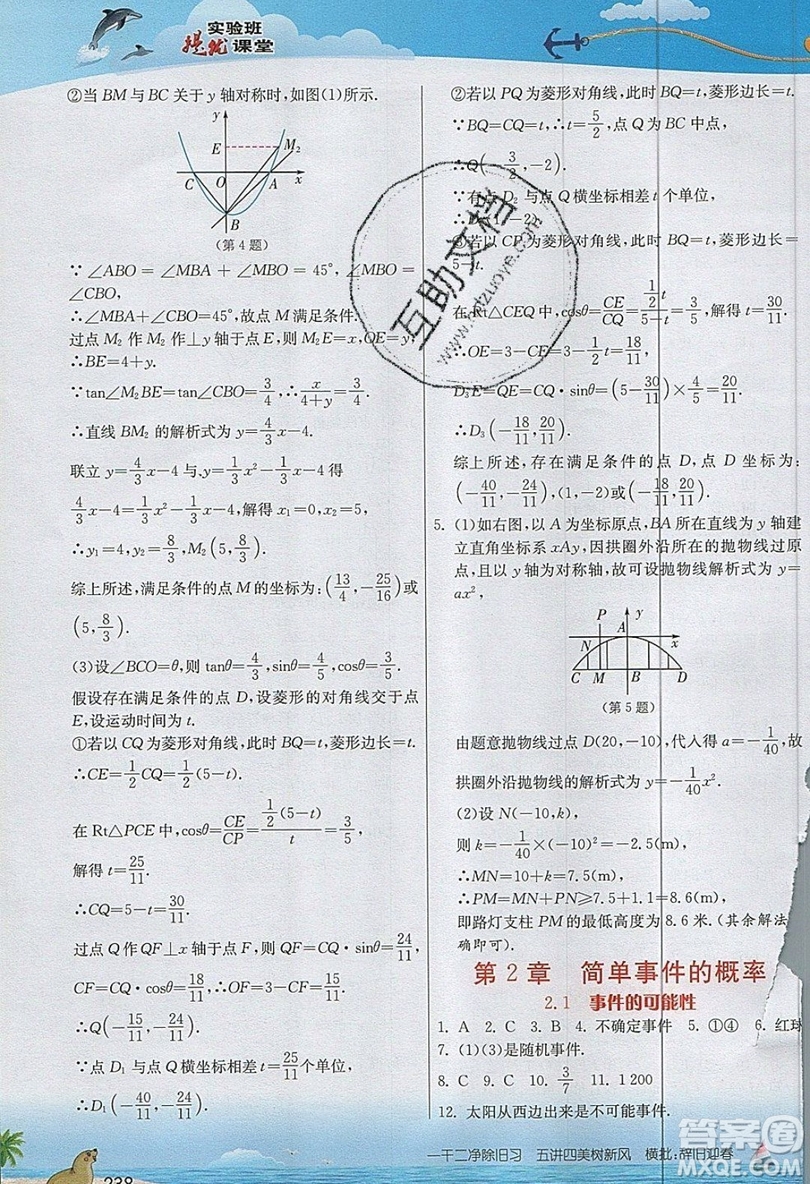 实验班
提优课堂
②当 BM 与 BC 关于 y 轴对称时,如图(1)所示.
y
E
M₂
C
O
A
x
B
(第 4 题)
∵∠ABO=∠MBA+∠MBO=45°,∠MBO=
∠CBO,
∴∠MBA+∠CBO=45°,故点 M 满足条件.
过点 M₂ 作 M₂ 作⊥y 轴于点 E,则 M₂E=x,OE=y,
∴BE=4+y.
∵tan∠M₂BE=tan∠CBO=3/4,∴x/(4+y)=3/4.
∴直线 BM₂ 的解析式为 y=4/3x-4.
联立 y=4/3x-4 与 y=1/3x²-1/3x-4 得
4/3x-4=1/3x²-1/3x-4,解得 x₁=0,x₂=5.
∴y₁=4,y₂=8/3,M₂(5,8/3).
综上所述,满足条件的点 M 的坐标为:(13/4,-25/16)或
(5,8/3).
(3)设∠BCO=θ,则 tanθ=4/3,sinθ=4/5,cosθ=3/5.
假设存在满足条件的点 D,设菱形的对角线交于点
E,设运动时间为 t.
①若以 CQ 为菱形对角线,此时 BQ=t,菱形边长=t.
∴CE=1/2CQ=1/2(5-t).
在 Rt△PCE 中,cosθ=CE/CP=1/2(5-t)/t=3/5,
解得 t=25/11.
∴CQ=5-t=30/11.
过点 Q 作 QF⊥x 轴于点 F,则 QF=CQ·sinθ=24/11,
CF=CQ·cosθ=18/11,OF=OC-CF=15/11.
∴Q(-15/11,-24/11).
∵点 D₁ 与点 Q 横坐标相差 25/11 个单位,
∴D₁(-40/11,-24/11).
②若以 PQ 为菱形对角线,此时 BQ=t,菱形边长=t.
∵BQ=CQ=t,∴t=5/2,点 Q 为 BC 中点,
∴Q(-3/2,-2).
∵有点 D₂ 与点 Q 横坐标相差 t 个单位,
∴D₂(1,-2)
③若以 CP 为菱形对角线,此时 BQ=t,菱形边长=
5-t.
在 Rt△CEQ 中,cosθ=CE/CQ=1/2t/(5-t)=3/5,解得 t=30/11.
∴OE=3-CE=3-1/2t=18/11,
D₃E=QE=CQ·sinθ=(5-30/11)×4/5=20/11.
∴D₃(-18/11,20/11).
综上所述,存在满足条件的点 D,点 D 坐标为:
(-40/11,-24/11),(1,2)或(-18/11,20/11).
5. (1)如右图,以 A 为坐标原点,BA 所在直线为 y 轴建
立直角坐标系 xAy,因拱圈外沿所在的抛物线过原
点,且以 y 轴为对称轴,故可设抛物线解析式为 y=
ax²,
P
y
A
x
N
C
M
B
D
(第 5 题)
由题意抛物线过点 D(20,-10),代入得 a=-1/40,故
拱圈外沿抛物线的解析式为 y=-1/40x².
(2)设 N(-10,k),
则 k=-1/40×(-10)²=-2.5(m)
∴MN=10-2.5=7.5(m),
∴PM=MN+PN≥7.5+1.1=8.6(m).
即路灯支柱 PM 的最低高度为 8.6 米.(其余解法
确即可).
第 2 章 简单事件的概率
2.1 事件的可能性
1. A 2. C 3. B 4. 不确定事件 5. ①④ 6. 红球
7. (1)(3)是随机事件.
8. C 9. C 10. 3/7 11. 1 200
12. 太阳从西边出来是不可能事件.
一干二净除旧习 五讲四美树新风 横批:辞旧迎春
238
互助文档
答案圈
MXQE.COM